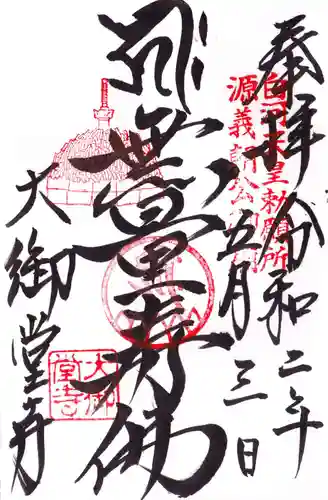 奉拝
令和二年
五月三日
白河天皇勅願所
源義朝公
無量寿佛
大御堂寺
大御
堂寺